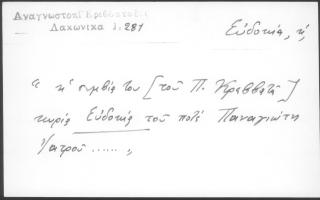 Ἀναγνωστοπ. Κρεββατᾶ
Λακωνικά λ. 281
Εὐδοκία, ἡ
"ἡ συμβία του [τοῦ Π. Κρεββατᾶ]
κυρία Εὐδοκία τοῦ ποτέ Παναγιώτη
Ἰατροῦ ......"